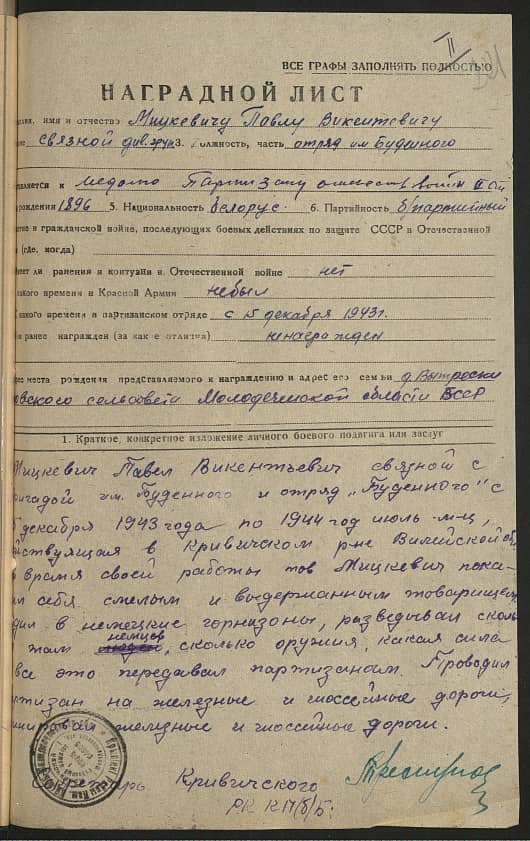 II
ВСЕ ГРАФЫ ЗАПОЛНЯТЬ ПОЛНОСТЬЮ
НАГРАДНОЙ ЛИСТ
имя и отчество Мицкевичу Павлу Викентевичу
связной див. 3. Должность, часть отряд им Буденного
к медалю Партизану отечеств войны II ой
рождения 1896 5. Национальность белорус. 6. Партийность б/партийный
в гражданской войне, последующих боевых действиях по защите СССР в Отечественной
(где, когда)
ли ранения и контузии в Отечественной войне нет
какого времени в Красной Армии небыл
какого времени в партизанском отряде с 15 декабря 1943г.
ранее награжден (за какие отличия) ненагражден
места рождения представляемого к награждению и адрес его семьи д.
сельсовета Молодечнокой области БССР
1. Краткое, конкретное изложение личного боевого подвига или заслуг
Мицкевич Павел Викентьевич связной с
бригадой им. Буденного и отряд „Буденного" с
декабря 1943 года по 1944 год июль м-ц,
действующая в Кривичском р-не Вилейской об.
время своей работы тов Мицкевич пока-
себя смелым и выдержанным товарищем
в немецкие горнизоны, разведывал сколь
там немцов, сколько оружия, какая сила
все это передавал партизанам. Проводил
партизан на железные и шоссейные дороги,
железные и шоссейные дороги.
Секретарь Кривичского
РК КП(б)Б.